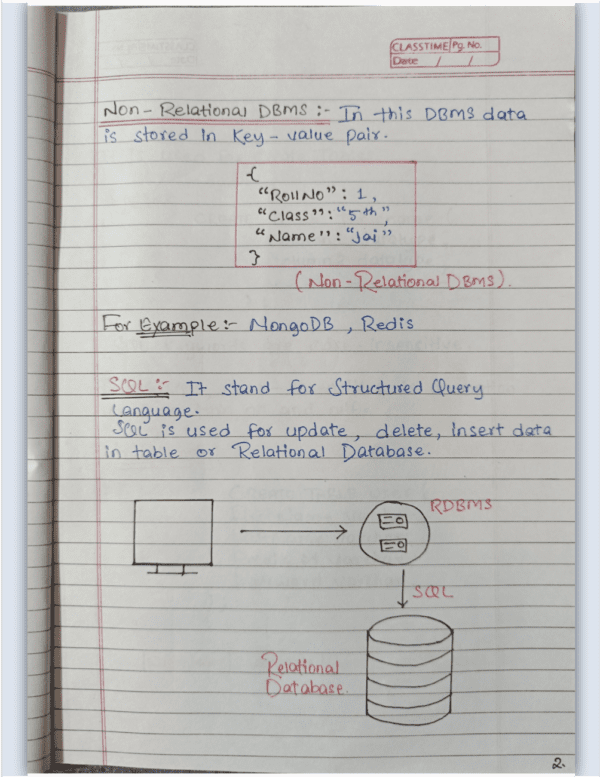 CLASSTIME Pg. No.
Date / /
Non-Relational DBMS :- In this DBMS data
is stored in Key-value pair.
{
"RollNo": 1,
"Class": "5th",
"Name": "Jai"
}
(Non-Relational DBMS).
For Example:- MongoDB, Redis
SQL :- It stand for Structured Query
Language.
SQL is used for update, delete, insert data
in table or Relational Database.
RDBMS
SQL
Relational
Database.
2.